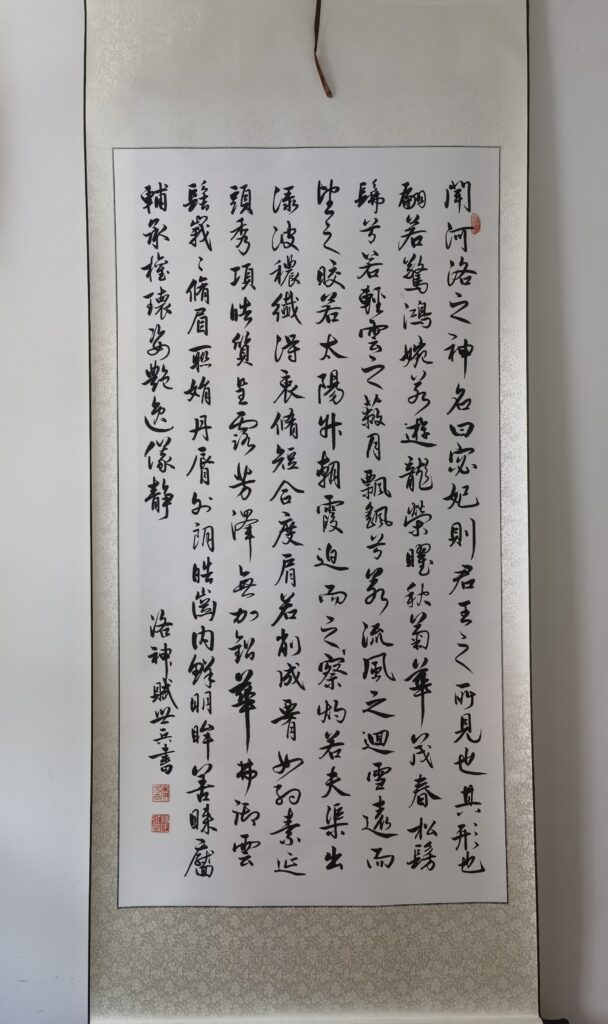 聞河洛之神名曰宓妃則君王之所見也其形也
翩若驚鴻婉若遊龍榮曜秋菊華茂春松髣
髴兮若輕雲之蔽月飄颻兮若流風之迴雪遠而
望之皎若太陽升朝霞迫而之察灼若夫渠出
淥波穠纖得衷脩短合度肩若削成腰如約素延
頸秀項皓質呈露芳澤無加鉛華弗御雲
髻峩〻脩眉聯娟丹脣外朗皓齒内鮮明眸善睞靨
輔承權瓌姿艷逸儀静
洛神賦世兵書